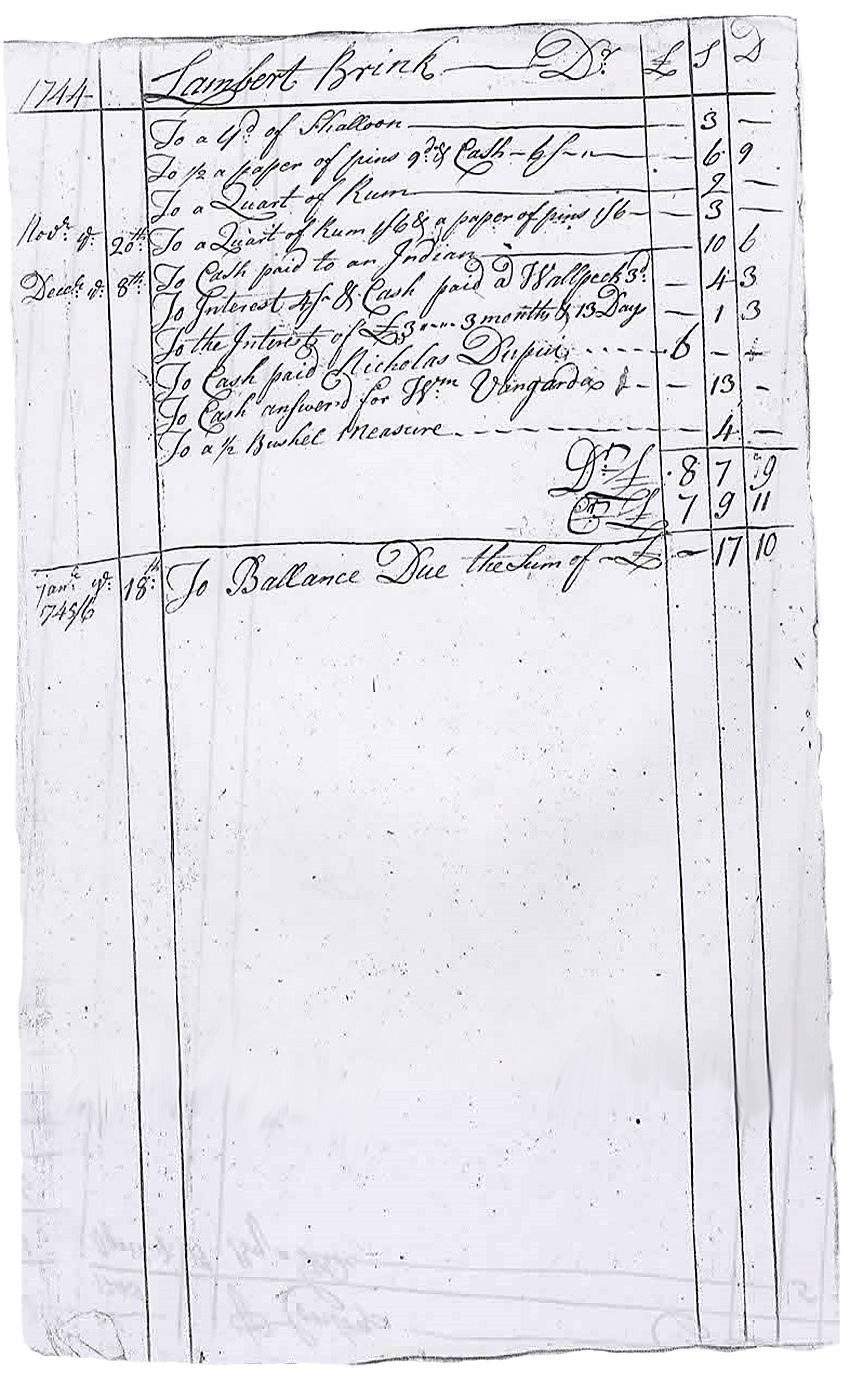 1744 Lambert Brink — Dr £ S D
To a yd of Shalloon — 3 —
To 1/2 a paper of pins 9d & Cash - 6/- — 6 9
To a Quart of Rum — 2 —
Novr ye 20th To a Quart of Rum 1/6 & a paper of pins 1/6 — 3 —
To Cash paid to an Indian — 10 6
Decr ye 8th To Cash paid a Wallpeck 3d — 4 3
To Interest 4/ & Cash
To the Interest of £3 3 months & 13 Days — 1 3
To Cash paid Nicholas Dupui 6 - -
To Cash answerd for Wm Vangarden — 13 -
To a 1/2 Bushel Measure — 4 —
Dr £ 8 7 9
Cr £ 7 9 11
Janr ye 18th To Ballance Due the Sum of - £ - 17 10
1745/6